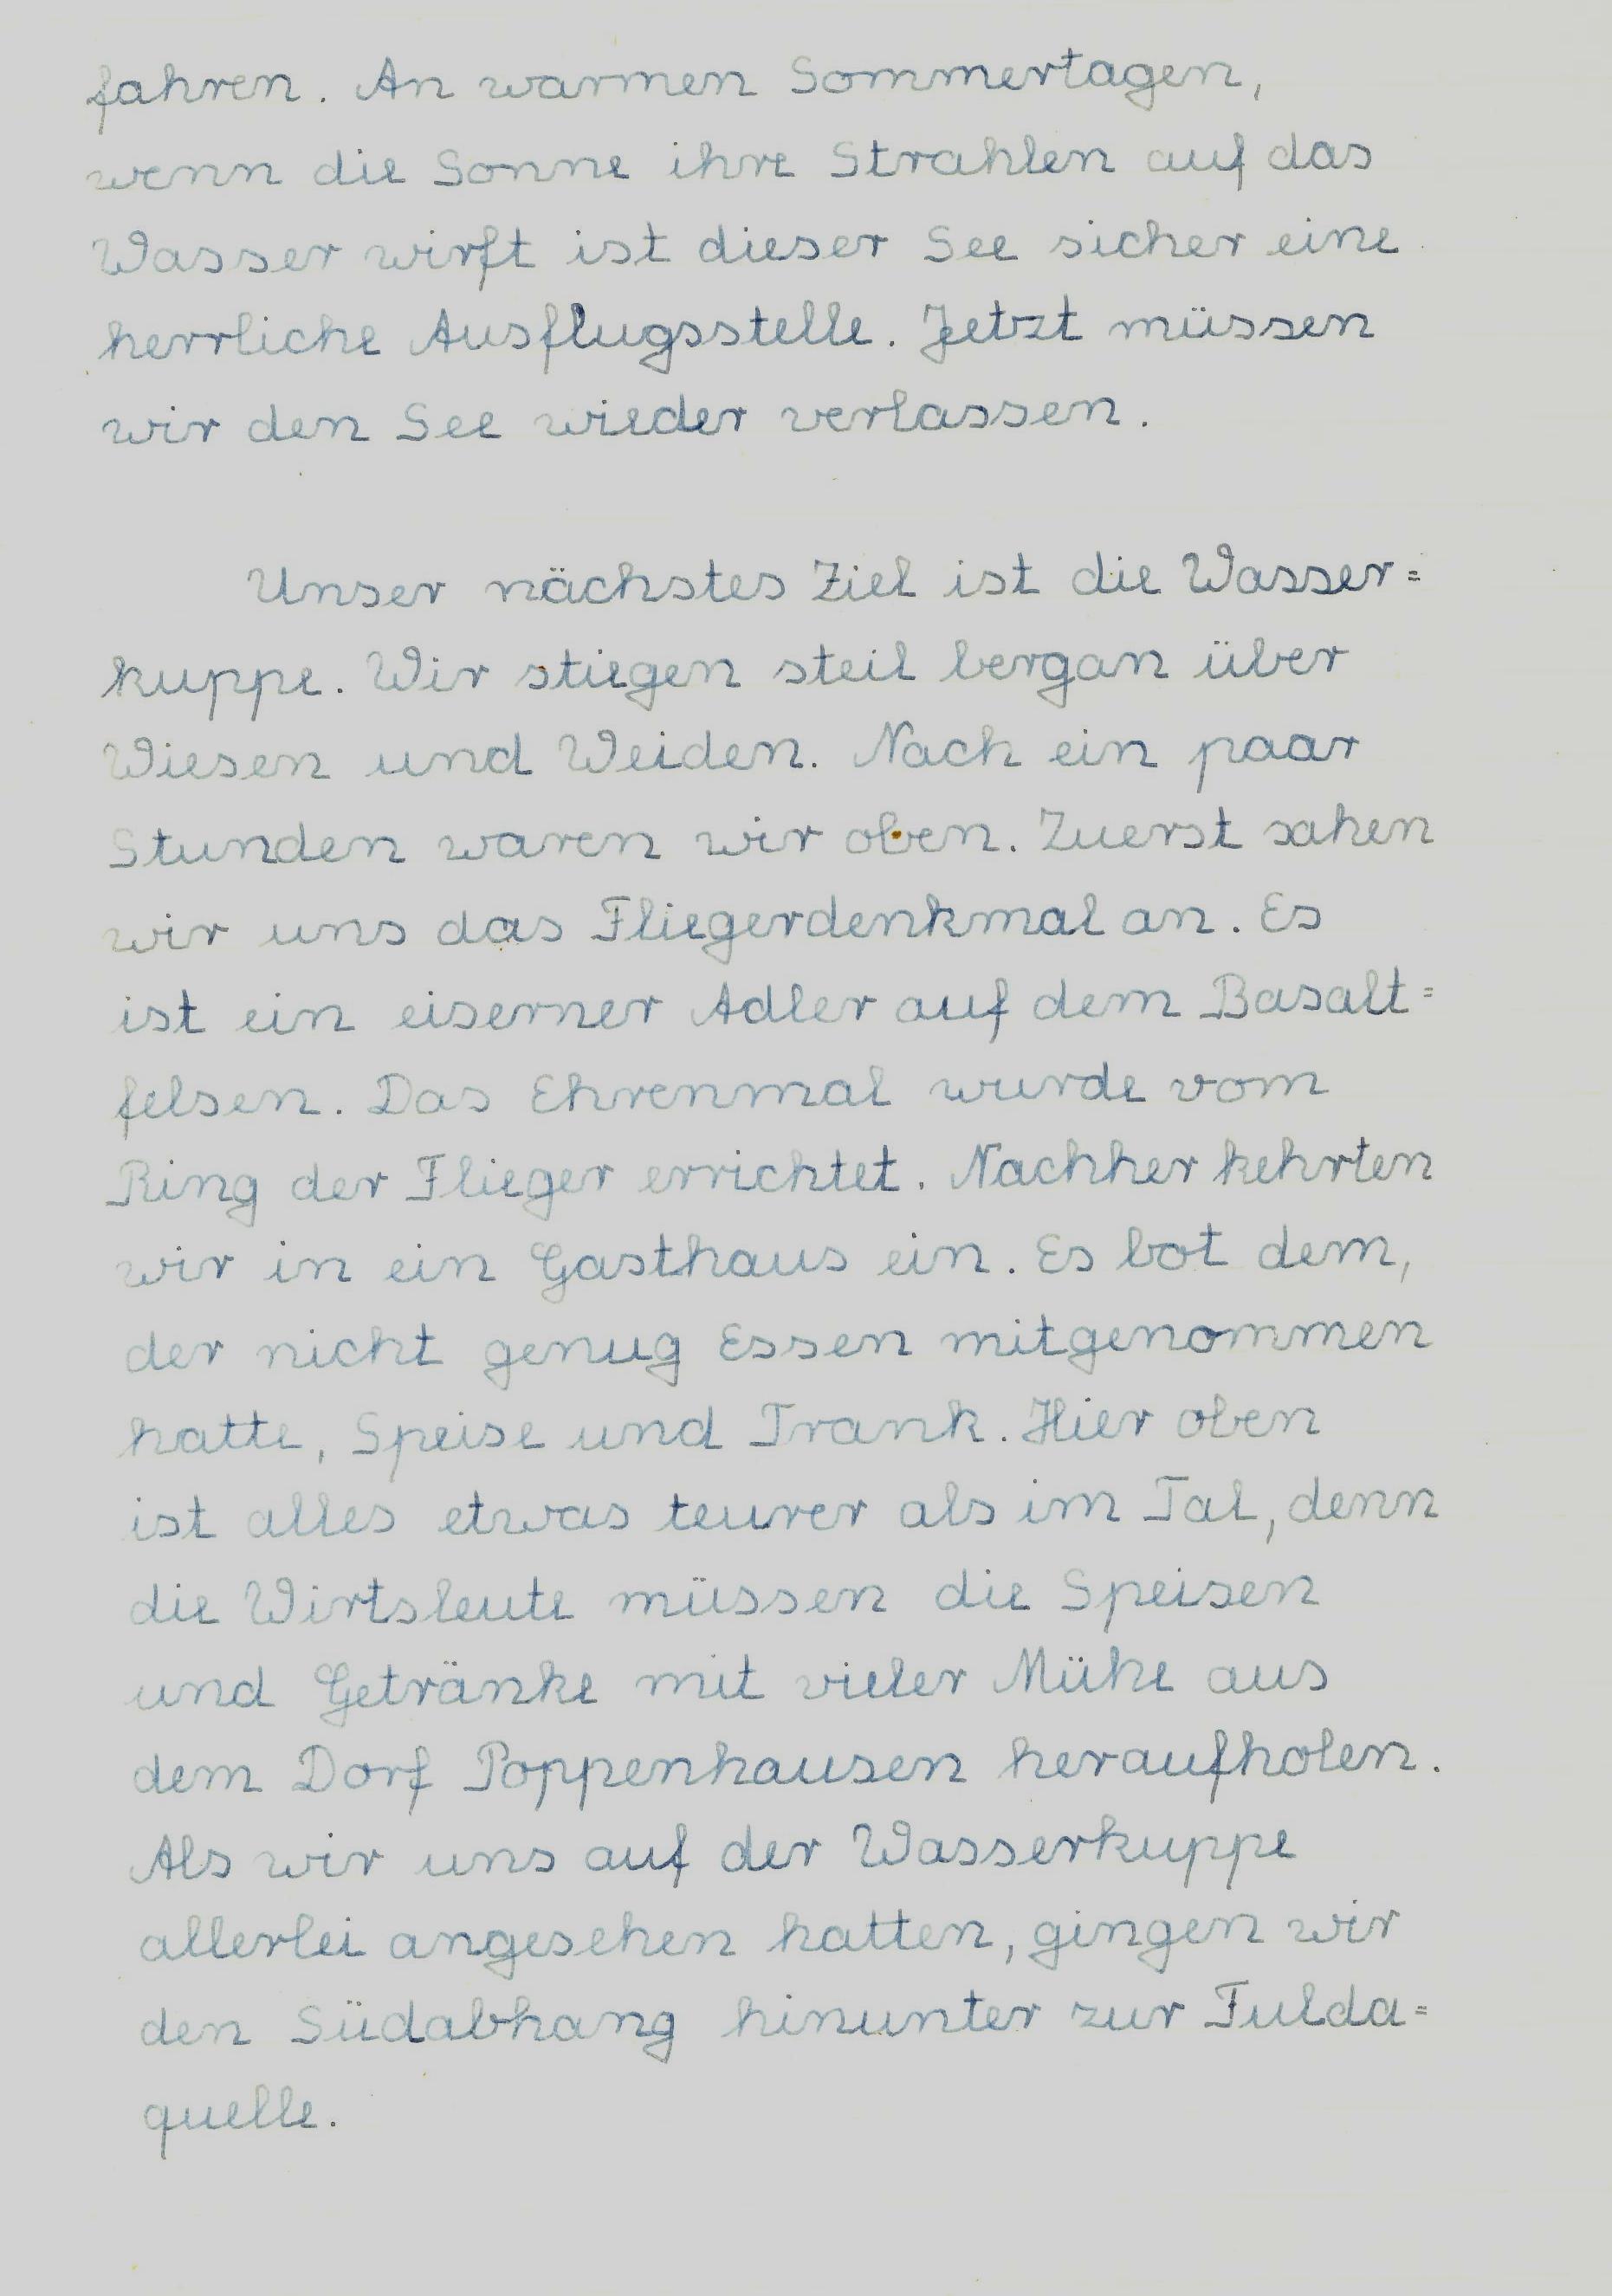 fahren. An warmen Sommertagen,
wenn die Sonne ihre Strahlen auf das
Wasser wirft ist dieser See sicher eine
herrliche Ausflugsstelle. Jetzt müssen
wir den See wieder verlassen.
Unser nächstes Ziel ist die Wasser=
kuppe. Wir stiegen steil bergan über
Wiesen und Weiden. Nach ein paar
Stunden waren wir oben. Zuerst sahen
wir uns das Fliegerdenkmal an. Es
ist ein eiserner Adler auf dem Basalt=
felsen. Das Ehrenmal wurde vom
Ring der Flieger errichtet. Nachher kehrten
wir in ein Gasthaus ein. Es bot dem,
der nicht genug Essen mitgenommen
hatte, Speise und Trank. Hier oben
ist alles etwas teurer als im Tal, denn
die Wirtsleute müssen die Speisen
und Getränke mit vieler Mühe aus
dem Dorf Poppenhausen heraufholen.
Als wir uns auf der Wasserkuppe
allerlei angesehen hatten, gingen wir
den Südabhang hinunter zur Fulda=
quelle.